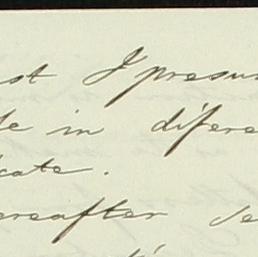 st I presu
e in difere
cate.
ereafter se